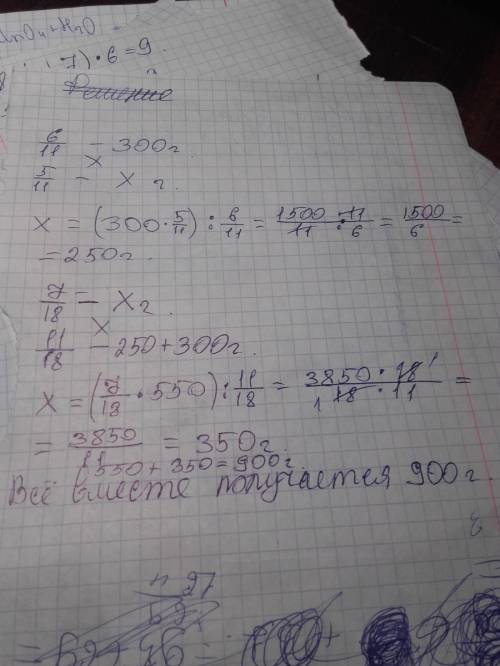 7) · 6 = 9
Решение
6/11 − 300г.
5/11 − X г.
X = (300 · 5/11) : 6/11 = 1500 · 11 / 11 · 6 = 1500/6 =
= 250г.
7/18 − X г.
11/18 − 250 + 300г.
X = (7/18 · 550) : 11/18 = 3850 · 18 / 18 · 11 =
= 3850/11 = 350г.
550 + 350 = 900г.
Всё вместе получается 900г.